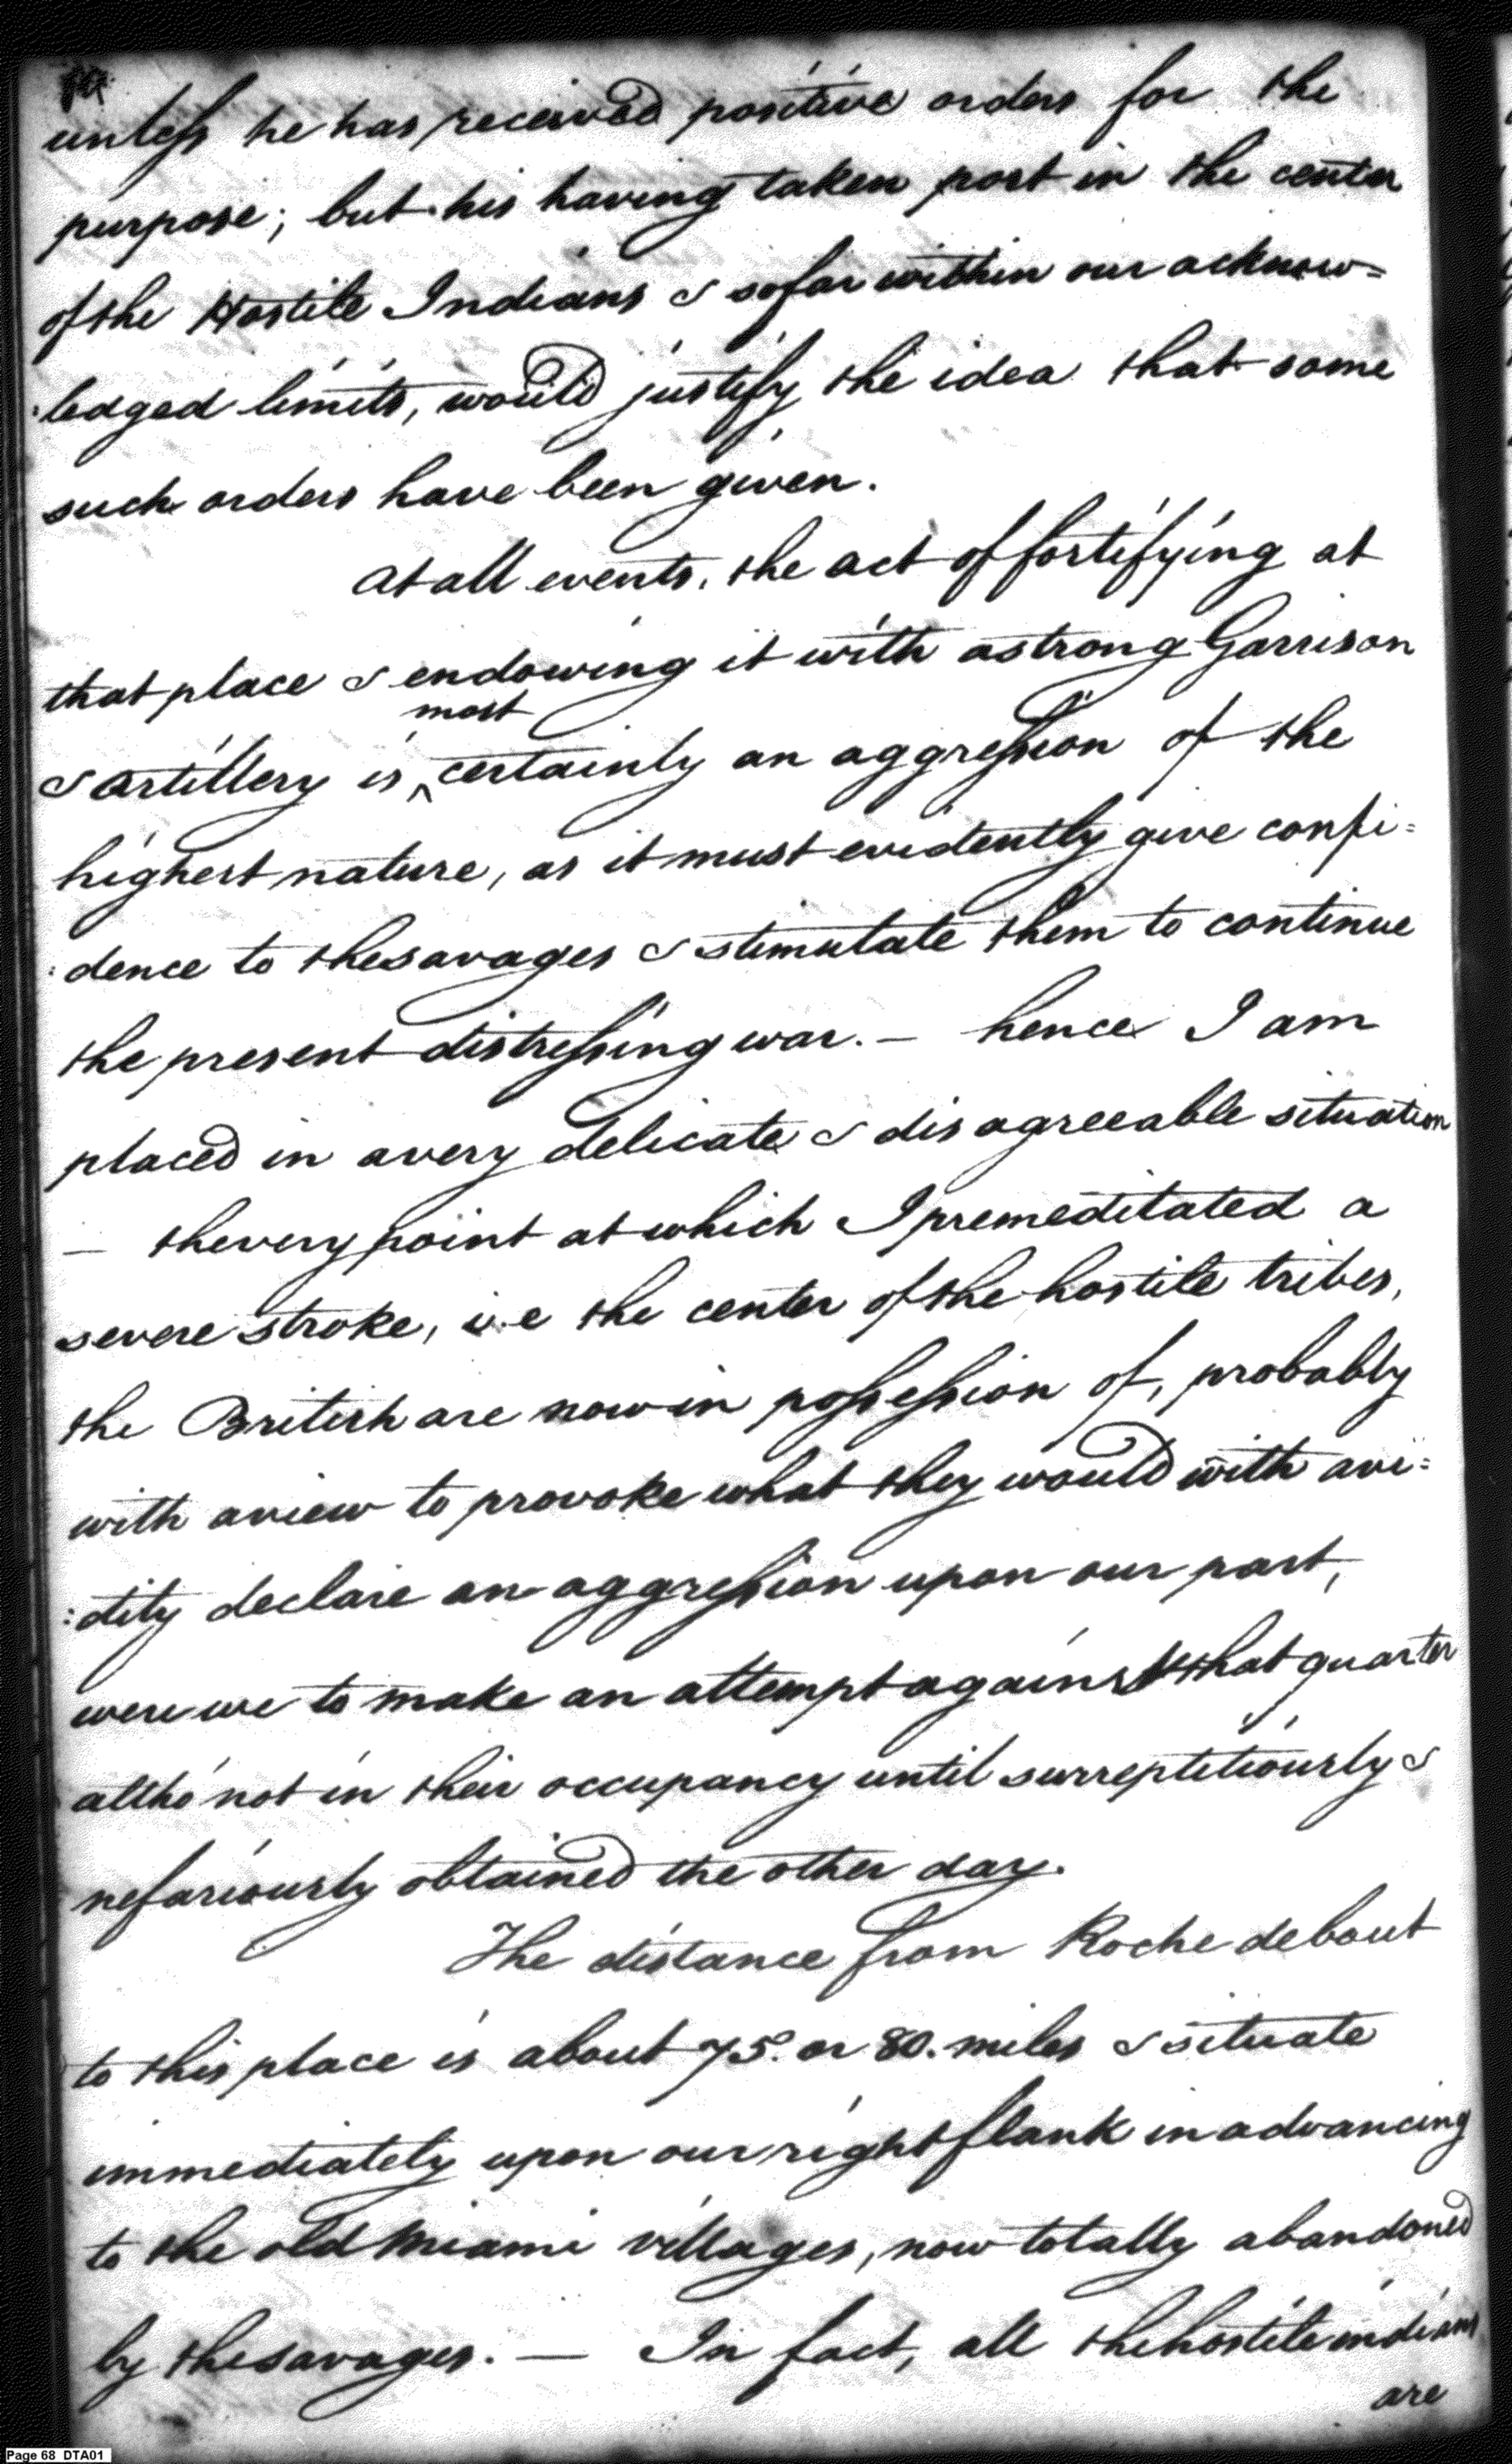 unless he has received positive orders for the
purpose; but his having taken post in the center
of the Hostile Indians & so far within our acknow=
:ledged limits, would justify the idea that some
such orders have been given.
At all events, the act of fortifying at
that place & endowing it with a strong Garrison
most
& Artillery is ^ certainly an aggression of the
highest nature, as it must evidently give confi=
:dence to the savages & stimulate them to continue
the present distressing war. — hence I am
placed in a very delicate & disagreeable situation
— the very point at which I premeditated a
severe stroke, i.e the center of the hostile tribes,
the British are now in possession of, probably
with a view to provoke what they would with avi=
:dity declare an aggression upon our part,
were we to make an attempt against that quarter
altho' not in their occupancy until surreptitiously &
nefariously obtained the other day.
The distance from Roche debout
to this place is about 75. or 80. miles & situate
immediately upon our right flank in advancing
to the old Miami villages, now totally abandoned
by the savages. — In fact, all the hostile indians
are
Page 68 DTA01